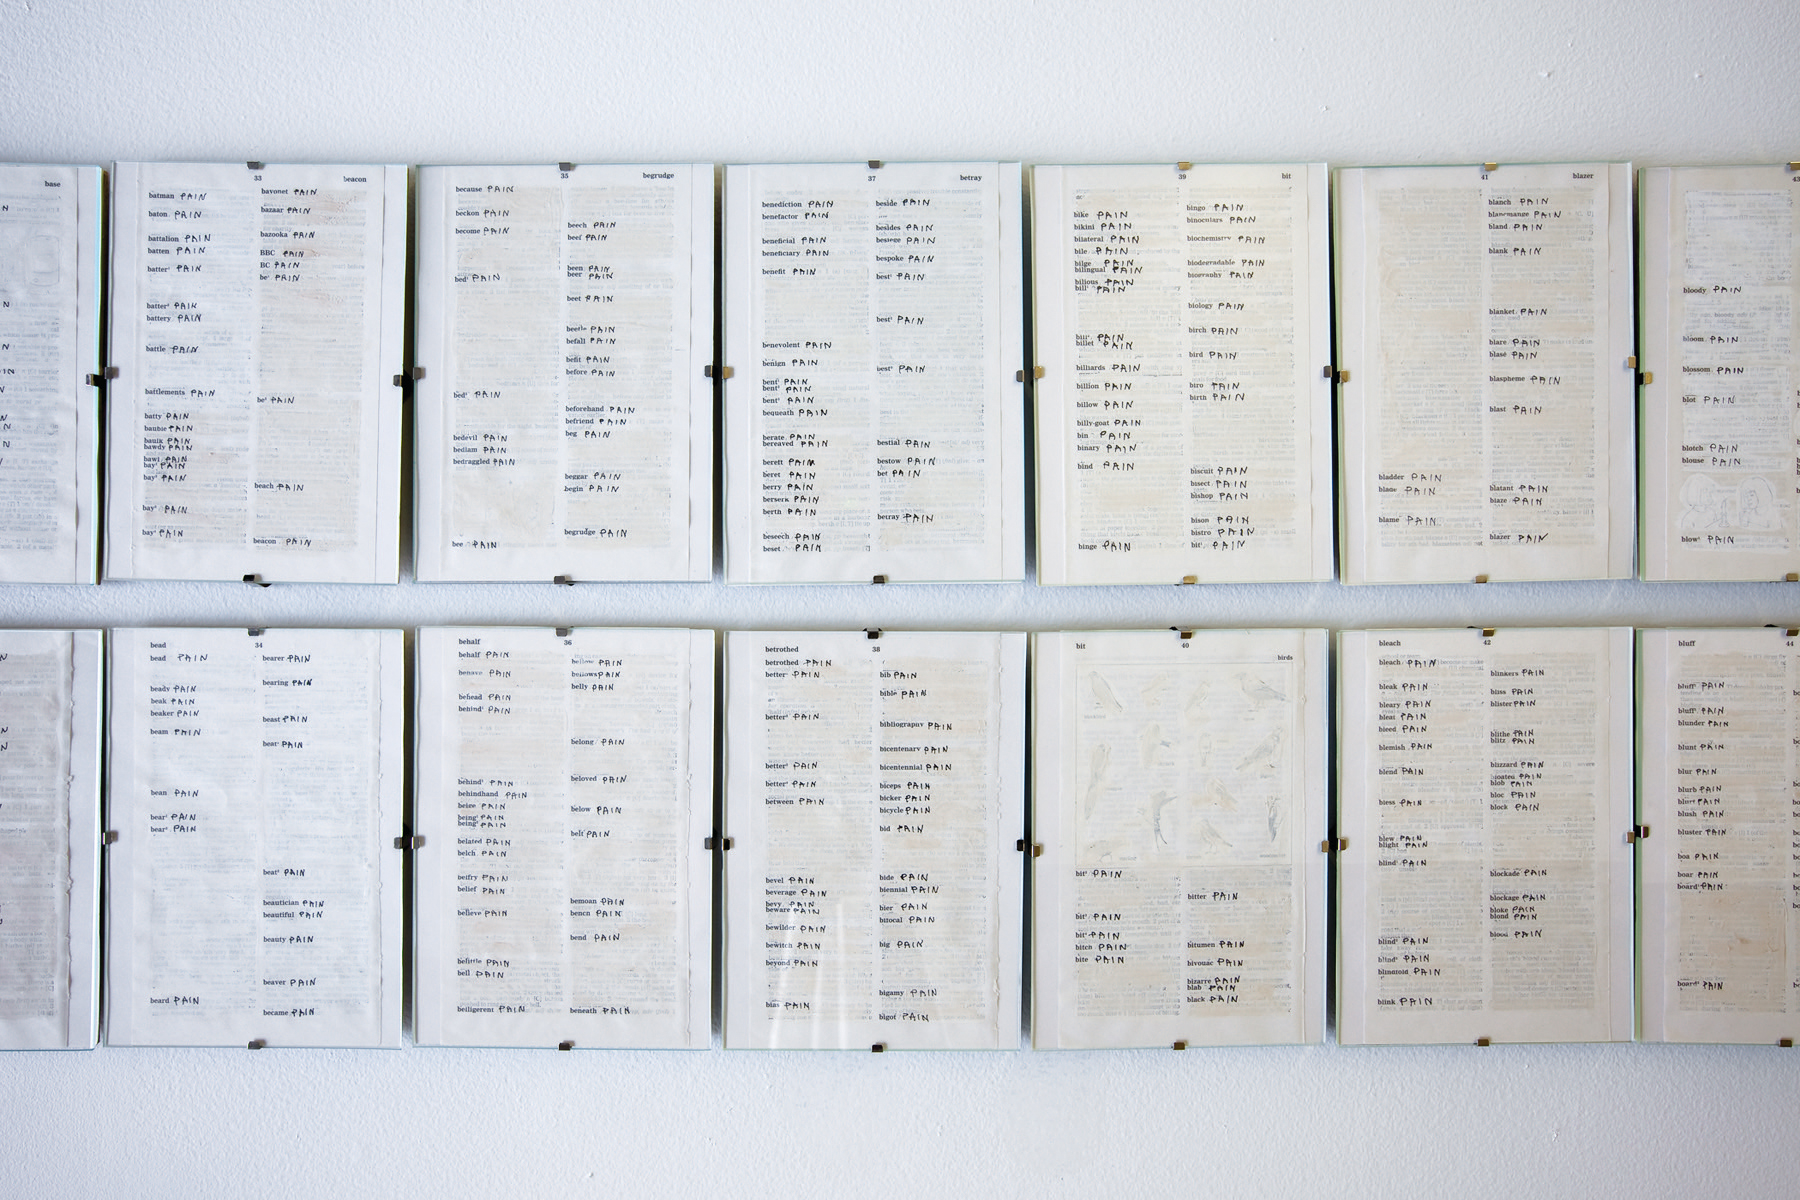 base
33 beacon
batman PAIN
baton PAIN
battalion PAIN
batten PAIN
batter¹ PAIN
batter² PAIN
battery PAIN
battle PAIN
battlements PAIN
batty PAIN
bauble PAIN
baulk PAIN
bawdy PAIN
bawl PAIN
bay¹ PAIN
bay² PAIN
bay³ PAIN
bay⁴ PAIN
bayonet PAIN
bazaar PAIN
bazooka PAIN
BBC PAIN
BC PAIN
be¹ PAIN
be² PAIN
beach PAIN
beacon PAIN
35 begrudge
because PAIN
beckon PAIN
become PAIN
bed¹ PAIN
bed² PAIN
bedevil PAIN
bedlam PAIN
bedraggled PAIN
bee PAIN
beech PAIN
beef PAIN
been PAIN
beer PAIN
beet PAIN
beetle PAIN
befall PAIN
befit PAIN
before PAIN
beforehand PAIN
befriend PAIN
beg PAIN
beggar PAIN
begin PAIN
begrudge PAIN
37 betray
benediction PAIN
benefactor PAIN
beneficial PAIN
beneficiary PAIN
benefit PAIN
benevolent PAIN
benign PAIN
bent¹ PAIN
bent² PAIN
bent³ PAIN
bequeath PAIN
berate PAIN
bereaved PAIN
bereft PAIN
beret PAIN
berry PAIN
berserk PAIN
berth PAIN
beseech PAIN
beset PAIN
beside PAIN
besides PAIN
besiege PAIN
bespoke PAIN
best¹ PAIN
best² PAIN
best³ PAIN
bestial PAIN
bestow PAIN
bet PAIN
betray PAIN
39 bit
bike PAIN
bikini PAIN
bilateral PAIN
bile PAIN
bilge PAIN
bilingual PAIN
bilious PAIN
bill¹ PAIN
bill² PAIN
billet PAIN
billiards PAIN
billion PAIN
billow PAIN
billy-goat PAIN
bin PAIN
binary PAIN
bind PAIN
binge PAIN
bingo PAIN
binoculars PAIN
biochemistry PAIN
biodegradable PAIN
biography PAIN
biology PAIN
birch PAIN
bird PAIN
biro PAIN
birth PAIN
biscuit PAIN
bisect PAIN
bishop PAIN
bison PAIN
bistro PAIN
bit¹ PAIN
41 blazer
bladder PAIN
blade PAIN
blame PAIN
blanch PAIN
blancmange PAIN
bland PAIN
blank PAIN
blanket PAIN
blare PAIN
blasé PAIN
blaspheme PAIN
blast PAIN
blatant PAIN
blaze PAIN
blazer PAIN
43
bloody PAIN
bloom PAIN
blossom PAIN
blot PAIN
blotch PAIN
blouse PAIN
blow¹ PAIN
bead 34
bead PAIN
beady PAIN
beak PAIN
beaker PAIN
beam PAIN
bean PAIN
bear¹ PAIN
bear² PAIN
beard PAIN
bearer PAIN
bearing PAIN
beast PAIN
beat¹ PAIN
beat² PAIN
beautician PAIN
beautiful PAIN
beauty PAIN
beaver PAIN
became PAIN
behalf 36
behalf PAIN
behave PAIN
behead PAIN
behind¹ PAIN
behind² PAIN
behindhand PAIN
beige PAIN
being¹ PAIN
being² PAIN
belated PAIN
belch PAIN
belfry PAIN
belief PAIN
believe PAIN
belittle PAIN
bell PAIN
belligerent PAIN
bellow PAIN
bellows PAIN
belly PAIN
belong PAIN
beloved PAIN
below PAIN
belt PAIN
bemoan PAIN
bench PAIN
bend PAIN
beneath PAIN
betrothed 38
betrothed PAIN
better¹ PAIN
better² PAIN
better³ PAIN
better⁴ PAIN
between PAIN
bevel PAIN
beverage PAIN
bevy PAIN
beware PAIN
bewilder PAIN
bewitch PAIN
beyond PAIN
bias PAIN
bib PAIN
bible PAIN
bibliography PAIN
bicentenary PAIN
bicentennial PAIN
biceps PAIN
bicker PAIN
bicycle PAIN
bid PAIN
bide PAIN
biennial PAIN
bier PAIN
bifocal PAIN
big PAIN
bigamy PAIN
bigot PAIN
bit 40
birds
bit² PAIN
bit³ PAIN
bit⁴ PAIN
bitch PAIN
bite PAIN
bitter PAIN
bitumen PAIN
bivouac PAIN
bizarre PAIN
blab PAIN
black PAIN
bleach 42
bleach PAIN
bleak PAIN
bleary PAIN
bleat PAIN
bleed PAIN
blemish PAIN
blend PAIN
bless PAIN
blew PAIN
blight PAIN
blind¹ PAIN
blind² PAIN
blind³ PAIN
blindfold PAIN
blink PAIN
blinkers PAIN
bliss PAIN
blister PAIN
blithe PAIN
blitz PAIN
blizzard PAIN
bloated PAIN
blob PAIN
bloc PAIN
block PAIN
blockade PAIN
blockage PAIN
bloke PAIN
blond PAIN
blood PAIN
bluff 44
bluff¹ PAIN
bluff² PAIN
blunder PAIN
blunt PAIN
blur PAIN
blurb PAIN
blurt PAIN
blush PAIN
bluster PAIN
boa PAIN
boar PAIN
board¹ PAIN
board² PAIN